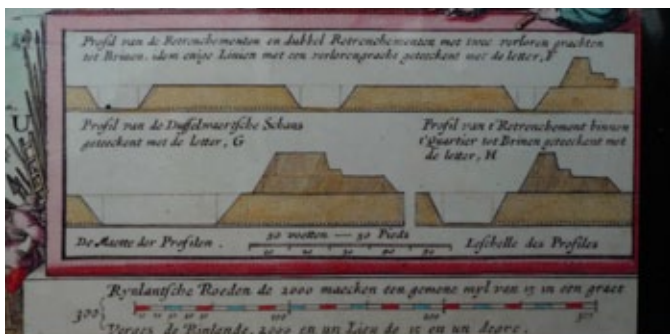 Profil van de Retrenchementen en dubbel Retrenchementen met twee verloren grachten
tot Brinen. idem enige Linien met een verlorengracht geteeckent met de letter, F
Profil van de Duffelwaertsche Schans
geteeckent met de letter, G
Profil van t'Retrenchement binnen
t'Quartier tot Brinen geteeckent met
de letter, H
De Maete der Profilen.
50 voetten — 50 Pieds
10 20 30 40 50
Leschelle des Profiles
Rynlantsche Roeden de 2000 maecken een gemene myl van 15 in een graet
300
100 200 300
Verges de Rinlande, 2000 en un Lieu de 15 en un degre.
U